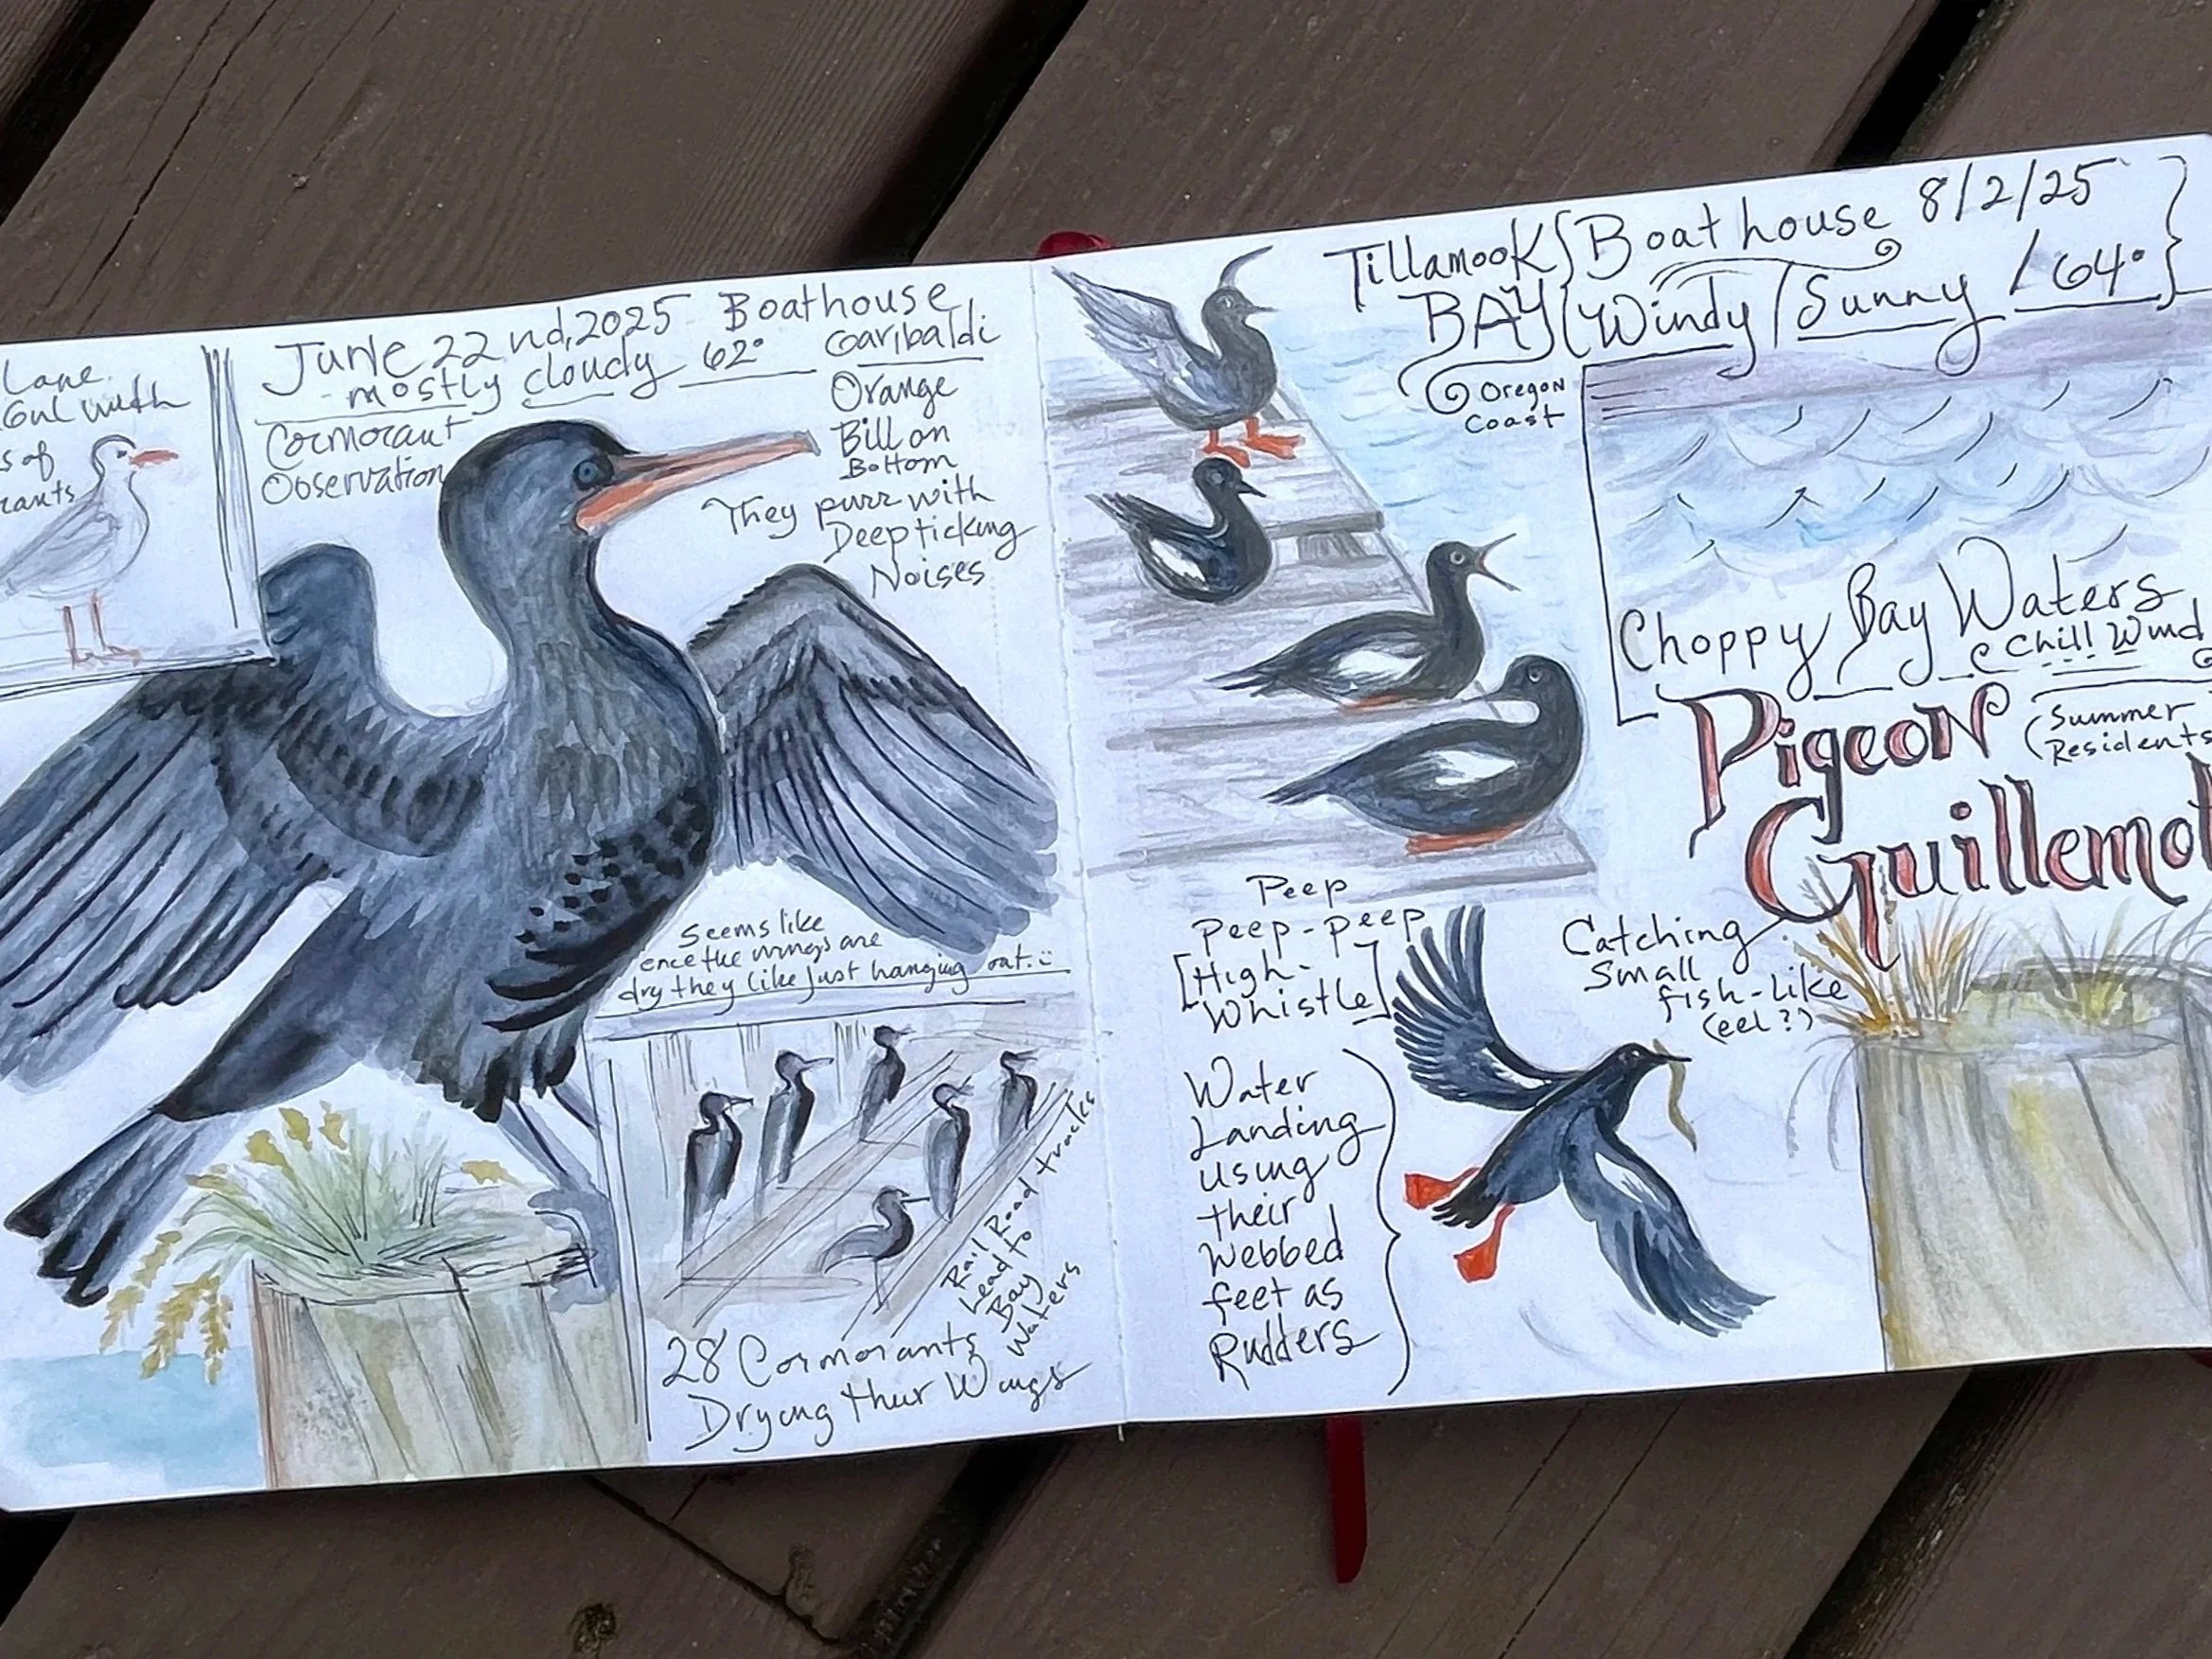 Lane
Gul with
s of
rants
June 22nd, 2025 Boathouse
mostly cloudy 62° Garibaldi
Cormorant
Observation
Orange
Bill on
Bottom
They purr with
Deep ticking
Noises
Seems like
once the wings are
dry they like just hanging out.
Rail Road tracks
Lead to
Bay
Waters
28 Cormorants
Drying their Wings
Tillamook Boathouse 8/2/25
BAY Windy / Sunny / 64°
Oregon
Coast
Choppy Bay Waters
Chill Wind
Pigeon
(Summer
Residents
Guillemot
Peep
Peep-peep
[High-
Whistle]
Catching
Small
fish-like
(eel?)
Water
Landing
using
their
webbed
feet as
Rudders